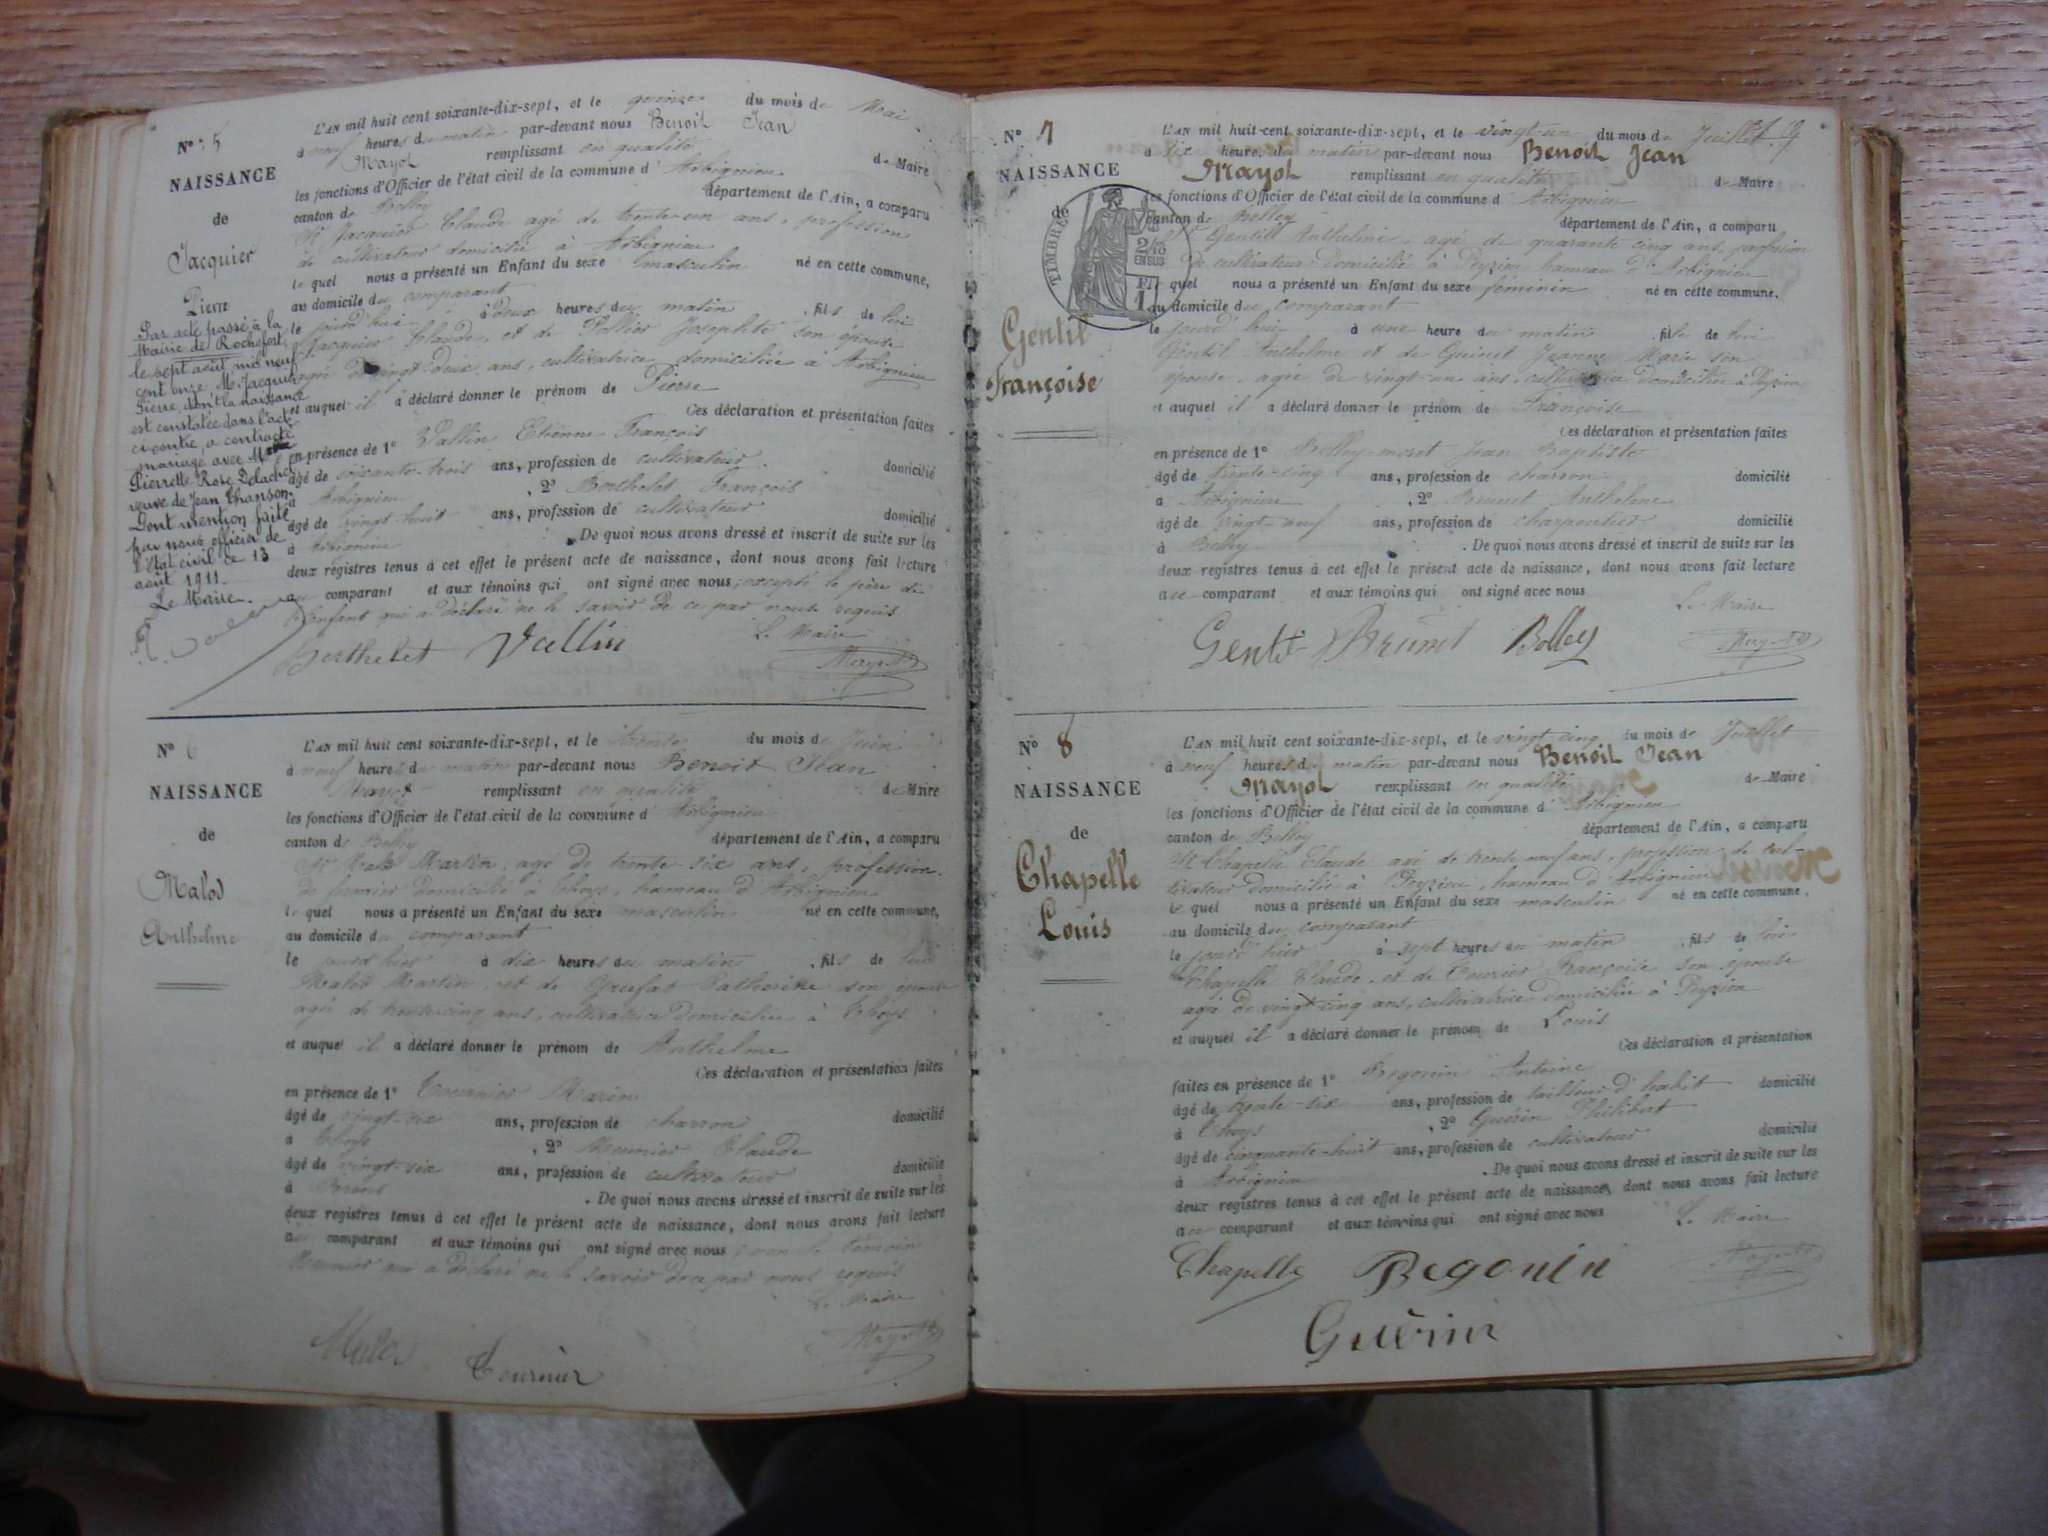 N° 5
NAISSANCE
de
Jacquier
Pierre
Par acte passé à la
Mairie de Rochefort
le sept août mil neuf
cent onze M. Jacquier
Pierre, dont la naissance
est constatée dans l'acte
ci-contre, a contracté
mariage avec
Pierrette Rose
veuve de Jean Chanson
Dont mention faite
par nous officier de
l'état civil ce 13
août 1911.
Le Maire.
L'AN mil huit cent soixante-dix-sept, et le quinze du mois de Mai
à neuf heures du matin par-devant nous Benoit Jean
Mayot remplissant en qualité de Maire
les fonctions d'Officier de l'état civil de la commune d'Arbignieu
canton de Belley département de l'Ain, a comparu
Sr Jacquier Claude agé de trente-un ans, profession
de cultivateur domicilié à Arbignieu
le quel nous a présenté un Enfant du sexe masculin né en cette commune,
au domicile du comparant
le jourd'hui à deux heures du matin, fils de lui
Jacquier Claude, et de Josephte son épouse
agée de vingt-deux ans, cultivatrice domiciliée à Arbignieu
et auquel il a déclaré donner le prénom de Pierre
Ces déclaration et présentation faites
en présence de 1° Vallin Etienne François
âgé de soixante-trois ans, profession de cultivateur domicilié
à Arbignieu, 2° Berthelet François
âgé de vingt-huit ans, profession de cultivateur domicilié
à Arbignieu. De quoi nous avons dressé et inscrit de suite sur les
deux registres tenus à cet effet le présent acte de naissance, dont nous avons fait lecture
au comparant et aux témoins qui ont signé avec nous excepté le père de
l'enfant qui a déclaré ne le savoir de ce par nous requis
Le Maire
Berthelet Vallin Mayot
N° 6
NAISSANCE
de
Malod
Anthelme
L'AN mil huit cent soixante-dix-sept, et le trente du mois de Juin
à neuf heures du matin par-devant nous Benoit Jean
Mayot remplissant en qualité de Maire
les fonctions d'Officier de l'état civil de la commune d'Arbignieu
canton de Belley département de l'Ain, a comparu
Sr Malod Martin agé de trente-six ans, profession
de fermier domicilié à Thoys, hameau d'Arbignieu
le quel nous a présenté un Enfant du sexe masculin né en cette commune,
au domicile du comparant
le jourd'hier à dix heures du matin, fils de lui
Malod Martin, et de Catherine son épouse
agée de trente-cinq ans, cultivatrice domiciliée à Thoys
et auquel il a déclaré donner le prénom de Anthelme
Ces déclaration et présentation faites
en présence de 1° Tournier Marin
âgé de vingt-six ans, profession de charron domicilié
à Thoys, 2° Meunier Claude
âgé de vingt-six ans, profession de cultivateur domicilié
à. De quoi nous avons dressé et inscrit de suite sur les
deux registres tenus à cet effet le présent acte de naissance, dont nous avons fait lecture
au comparant et aux témoins qui ont signé avec nous le témoin
Meunier qui a déclaré ne le savoir de ce par nous requis
Le Maire
Malod Tournier Mayot
N° 7
NAISSANCE
de
TIMBRE
2/10
EN SUS
FR
1
Gentil
Françoise
L'AN mil huit-cent soixante-dix-sept, et le vingt-un du mois de Juillet
à dix heures du matin par-devant nous Benoit Jean
Mayot remplissant en qualité de Maire
les fonctions d'Officier de l'état civil de la commune d'Arbignieu
canton de Belley département de l'Ain, a comparu
Sr Gentil Anthelme, agé de quarante cinq ans, profession
de cultivateur domicilié à Peyzieu hameau d'Arbignieu
le quel nous a présenté un Enfant du sexe feminin né en cette commune.
au domicile du comparant
le jourd'hui à une heure du matin, fille de lui
Gentil Anthelme et de Jeanne Marie son
épouse, agée de vingt-un ans, cultivatrice domiciliée à Peyzieu
et auquel il a déclaré donner le prénom de Françoise
Ces déclaration et présentation faites
en présence de 1° Jean Baptiste
âgé de trente-cinq ans, profession de charron domicilié
à Arbignieu, 2° Brunet Anthelme
âgé de vingt-neuf ans, profession de charpentier domicilié
à Belley. De quoi nous avons dressé et inscrit de suite sur les
deux registres tenus à cet effet le présent acte de naissance, dont nous avons fait lecture
au comparant et aux témoins qui ont signé avec nous
Le Maire
Gentil Brunet Bolley Mayot
N° 8
NAISSANCE
de
Chapelle
Louis
L'AN mil huit cent soixante-dix-sept, et le vingt-cinq du mois de Juillet
à neuf heures du matin par-devant nous Benoit Jean
Mayot remplissant en qualité de Maire
les fonctions d'Officier de l'état civil de la commune d'Arbignieu
canton de Belley département de l'Ain, a comparu
Sr Chapelle Claude agé de trente neuf ans, profession de cul-
tivateur domicilié à Peyzieu, hameau d'Arbignieu
le quel nous a présenté un Enfant du sexe masculin né en cette commune,
au domicile du comparant
le jourd'hier à sept heures du matin, fils de lui
Chapelle Claude, et de Françoise son épouse
agée de vingt-cinq ans, cultivatrice domiciliée à Peyzieu
et auquel il a déclaré donner le prénom de Louis
Ces déclaration et présentation
faites en présence de 1° Begonin Antoine
âgé de trente-six ans, profession de tailleur d'habit domicilié
à Thoys, 2° Guérin Philibert
âgé de cinquante-huit ans, profession de cultivateur domicilié
à Arbignieu. De quoi nous avons dressé et inscrit de suite sur les
deux registres tenus à cet effet le présent acte de naissance, dont nous avons fait lecture
au comparant et aux témoins qui ont signé avec nous
Le Maire
Chapelle Begonin Mayot
Guérin